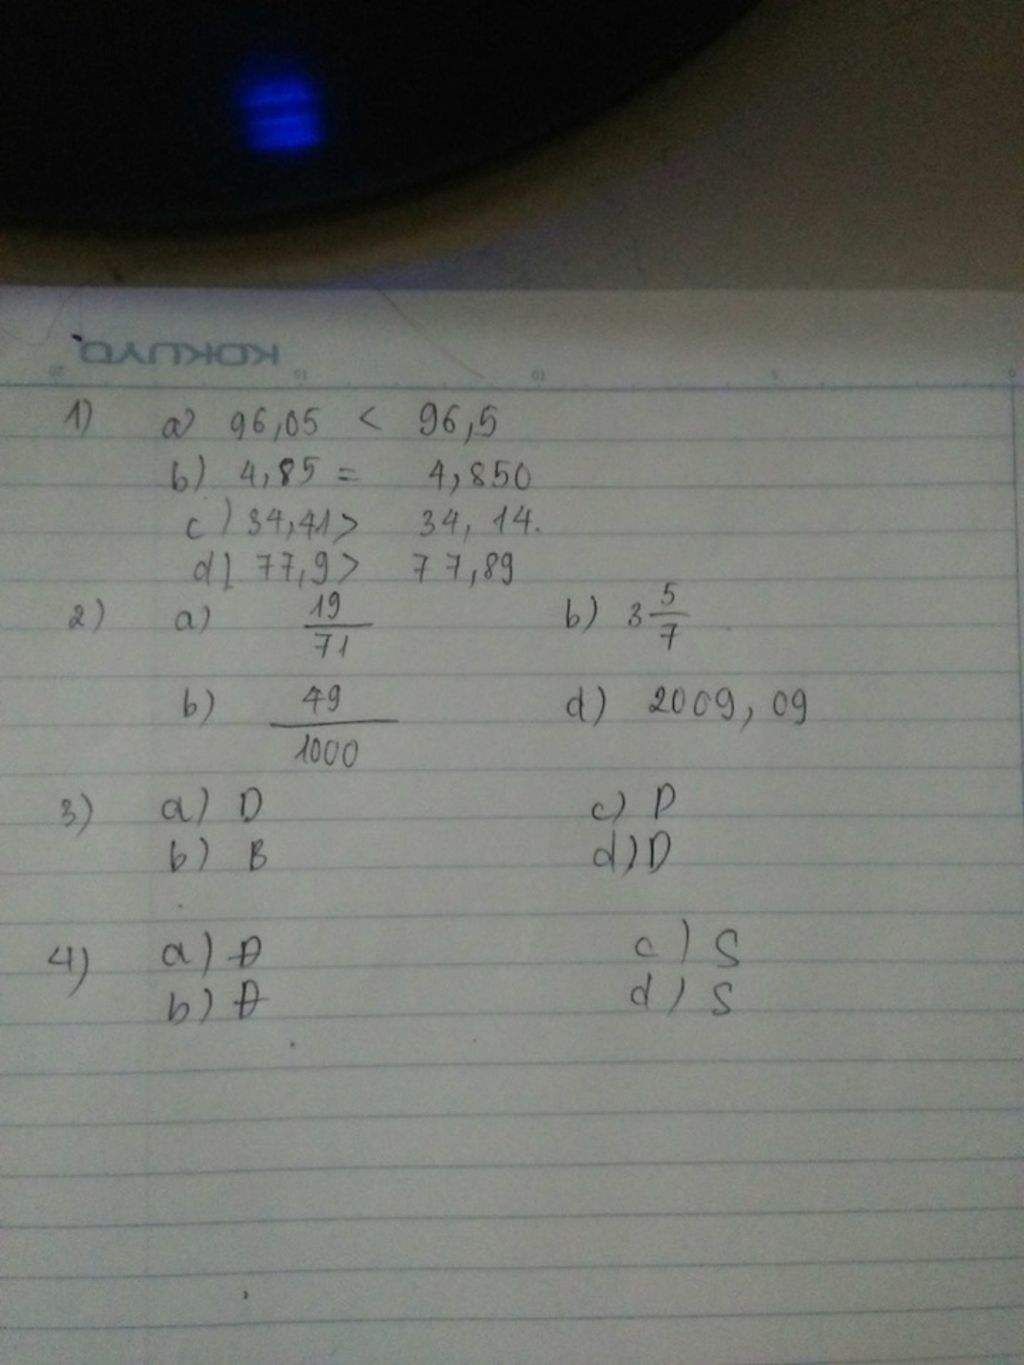 KOKUYO
1) a) 96,05 < 96,5
b) 4,85 = 4,850
c) 34,41 > 34,14.
d) 77,9 > 77,89
2) a) 19/71 b) 3 5/7
b) 49/1000 d) 2009,09
3) a) D c) D
b) B d) D
4) a) Đ c) S
b) Đ d) S